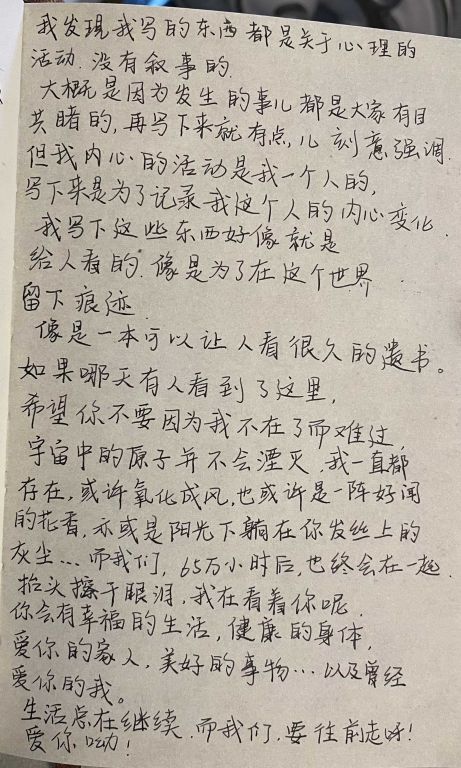 我发现我写的东西都是关于心理的
活动.没有叙事的.
大概是因为发生的事儿都是大家有目
共睹的,再写下来就有点儿刻意强调.
但我内心的活动是我一个人的,
写下来是为了记录我这个人的内心变化.
我写下这些东西好像就是
给人看的.像是为了在这个世界
留下痕迹.
像是一本可以让人看很久的遗书。
如果哪天有人看到了这里,
希望你不要因为我不在了而难过,
宇宙中的原子并不会湮灭.我一直都
存在,或许氧化成风,也或许是一阵好闻
的花香,亦或是阳光下躺在你发丝上的
灰尘...而我们,65万小时后,也终会在一起.
抬头擦干眼泪,我在看着你呢.
你会有幸福的生活,健康的身体,
爱你的家人,美好的事物...以及曾经
爱你的我。
生活总在继续.而我们,要往前走呀!
爱你呦!